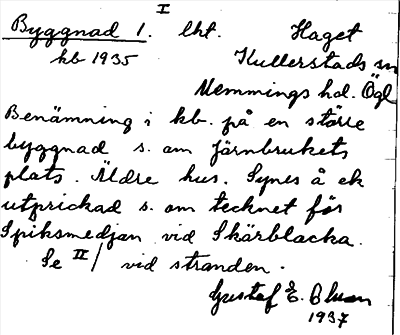 I
Byggnad 1. lht. Haget
kb 1935 Kullerstads sn
Memmings hd. Ögl
Benämning i kb. på en större
byggnad s. om järnbrukets
plats. Äldre hus. Synes å ek
utprickad s. om tecknet för
Spiksmedjan vid Skärblacka.
Se II/ vid stranden.
Gustaf E. Bluan
1937